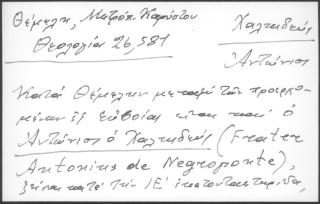 Θέμελη, Μητρόπ. Καρύστου
Θεολογία 26,581
Χαλκιδεύς
Ἀντώνιος
Κατά Θέμελην μεταξύ τῶν προερχο-
μένων ἐξ Εὐβοίας εἶναι καί ὁ
Ἀντώνιος ὁ Χαλκιδεύς (Frater
Antonius de Negroponte),
κατά τήν ΙΕ΄ ἑκατονταετηρίδα,